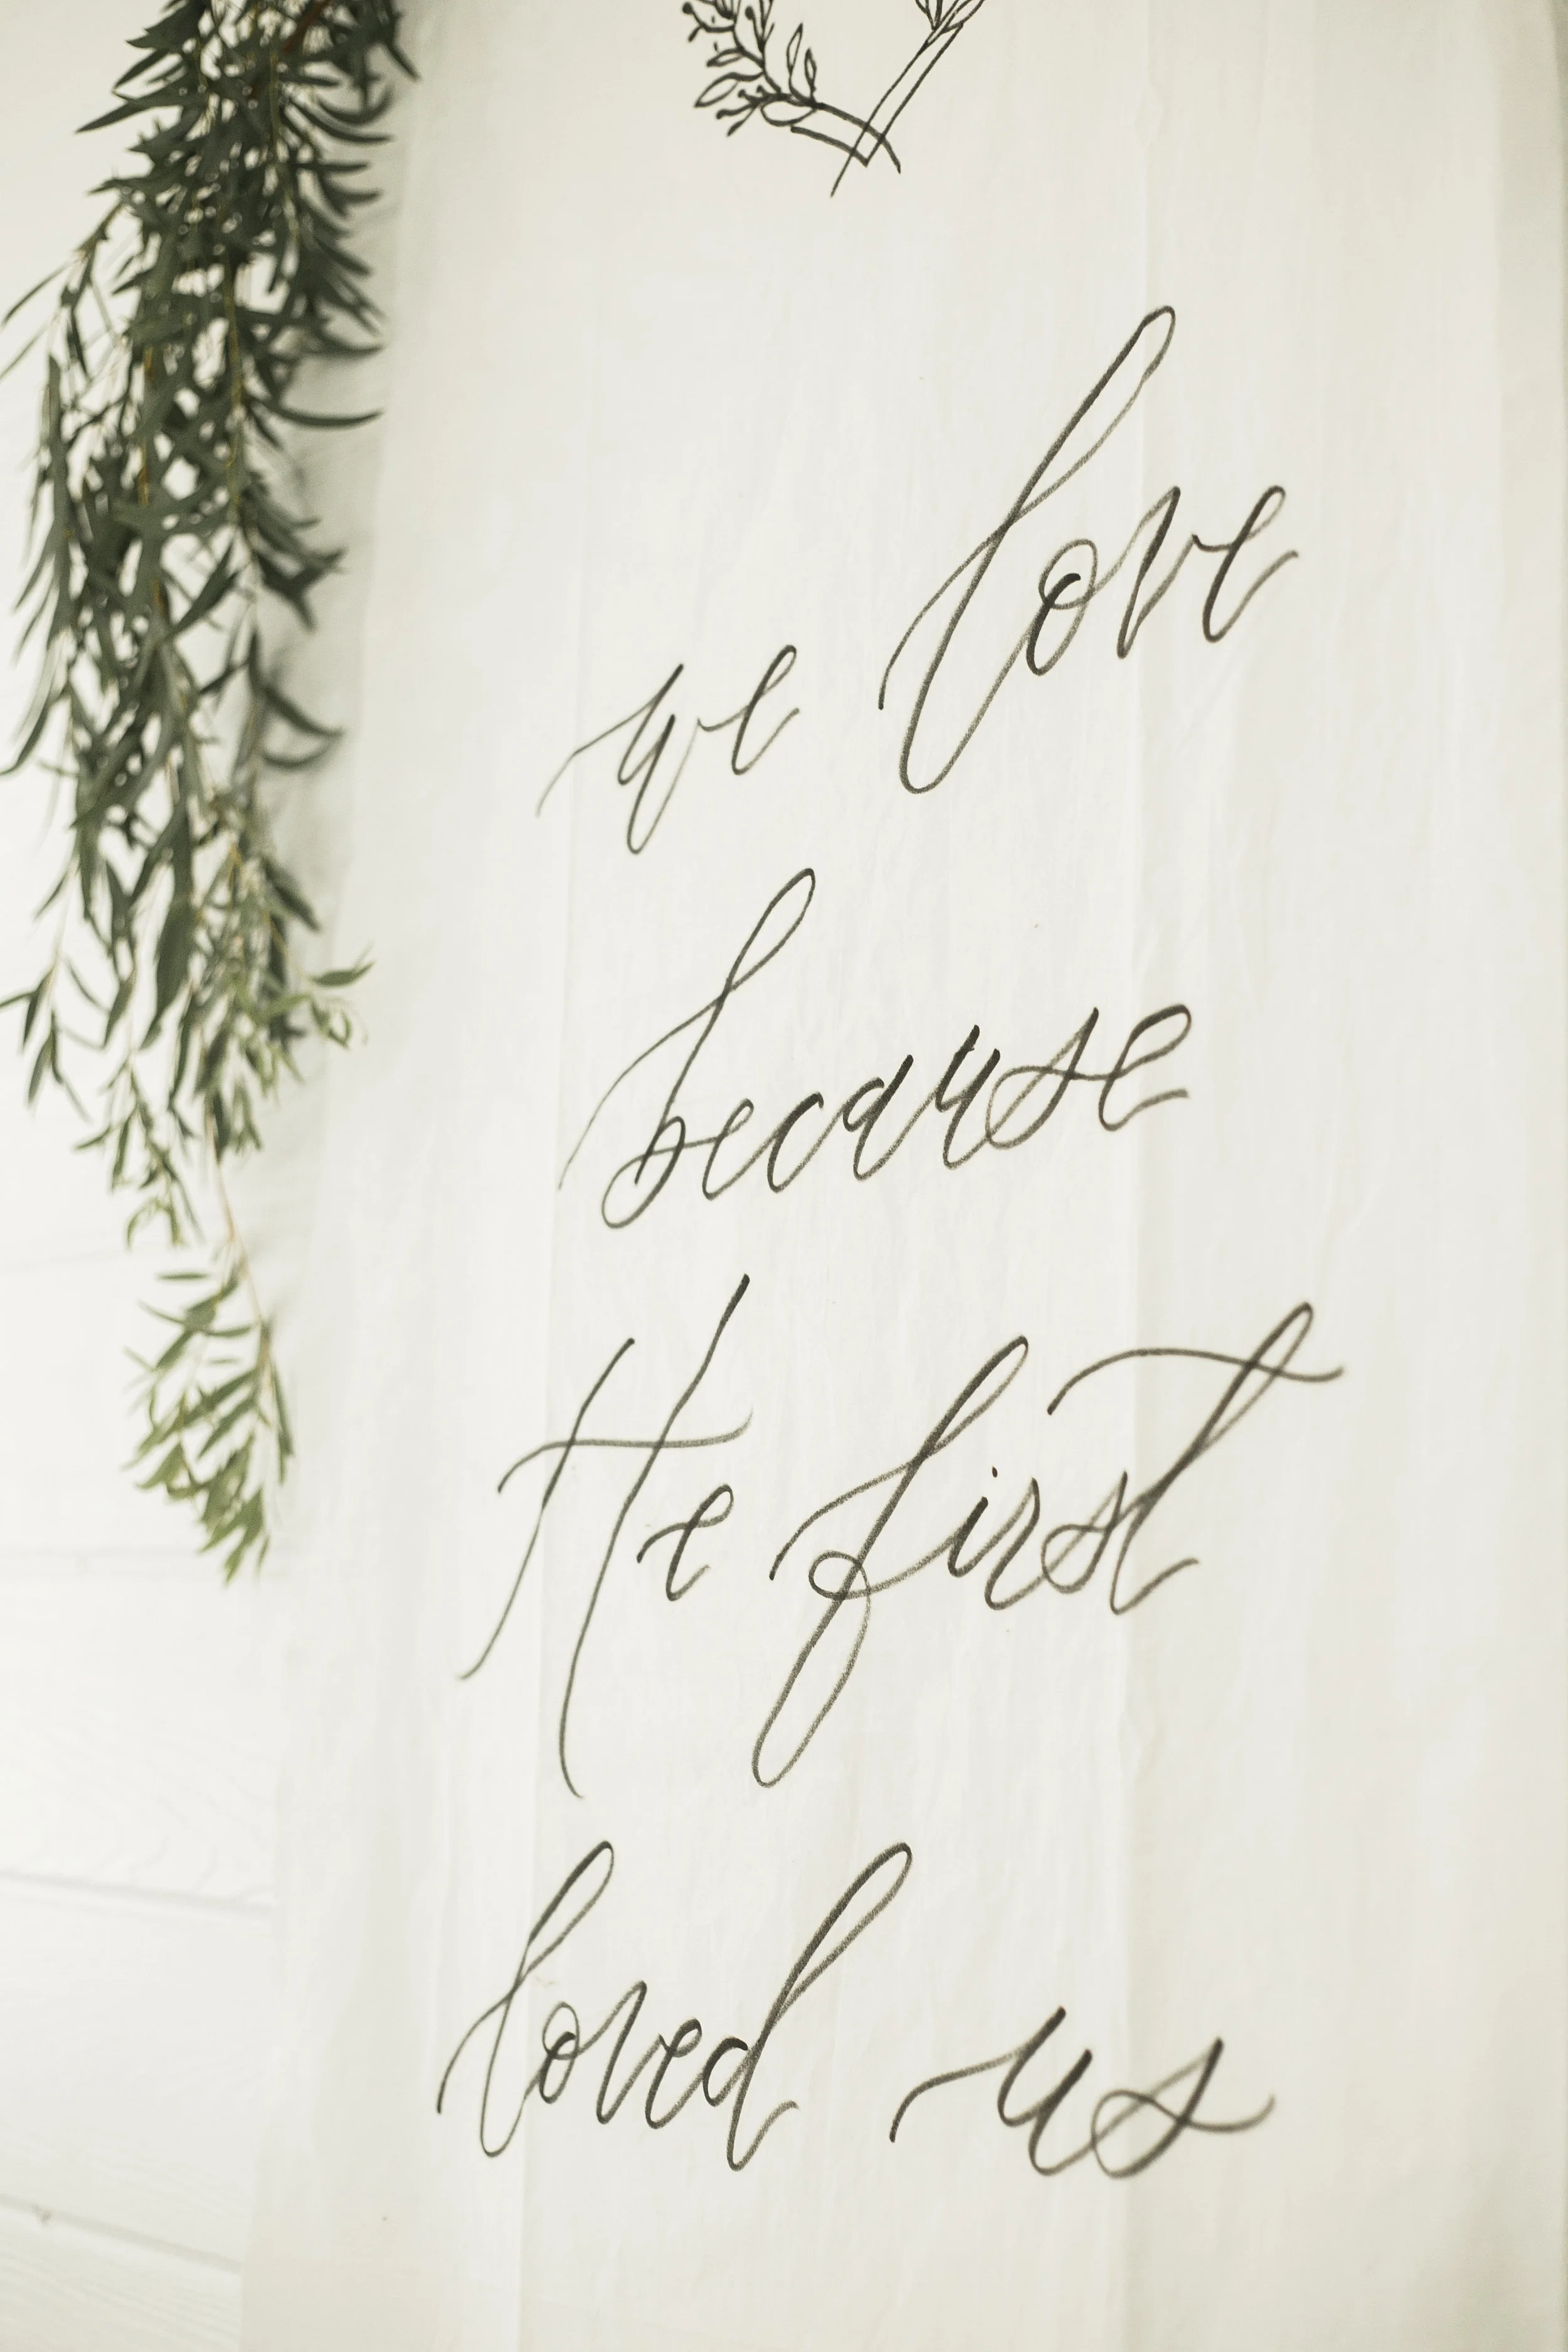 we love
because
He first
loved us